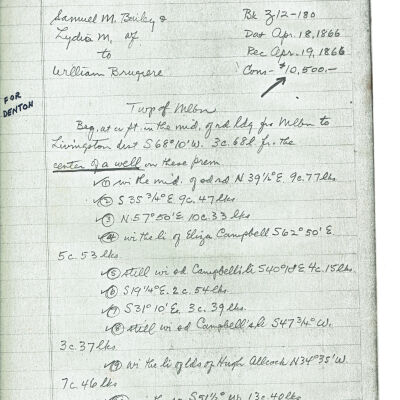 Samuel M. Bailey &
Lydia M. uf
to
William Brugiere
Bk Z12-180
Dat Apr. 18, 1866
Rec Apr. 19, 1866
Cons- $10,500.-
FOR
DENTON
Twp of Mlbn
Beg. at a pt. in the mid. of rd ldg frs Mlbn to
Livingston dist S 68° 10' W. 3 c. 68 l. fr. the
center of a well on these prem
① wi the mid. of sd rd N 39 1/2° E. 9c. 77 lks
② S 35 3/4° E. 9c. 47 lks
③ N. 57° 50' E 10c. 33 lks
④ wi the li of Eliza Campbell S 62° 50' E
5 c. 53 lks
⑤ still wi sd Campbell's li S 40° E 4c. 15 lks
⑥ S 19 1/4° E. 2 c. 54 lks
⑦ S 31° 10' E. 3 c. 39 lks.
⑧ still wi sd Campbell's li S 47 3/4° W.
3 c. 37 lks
⑨ wi the li of lds of Hugh Allcock N 34° 35' W.
7 c. 46 lks
S 51 1/2° W. 13c. 40 lks